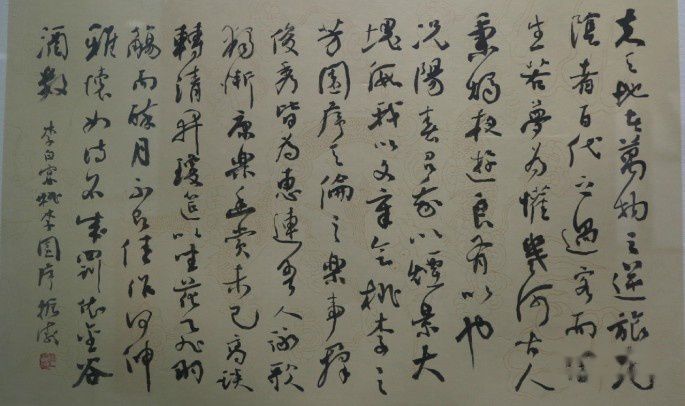 夫天地者萬物之逆旅光
陰者百代之過客而
生若夢為懽幾何古人
秉燭夜遊良有以也
況陽春召我以煙景大
塊假我以文章會桃李之
芳園序天倫之樂事
俊秀皆為惠連吾人詠歌
獨慚康樂幽賞未已高談
轉清開瓊筵以坐花飛羽
觴而醉月不有佳作何伸
雅懷如詩不成罰依金谷
酒數
李白宴桃李園序